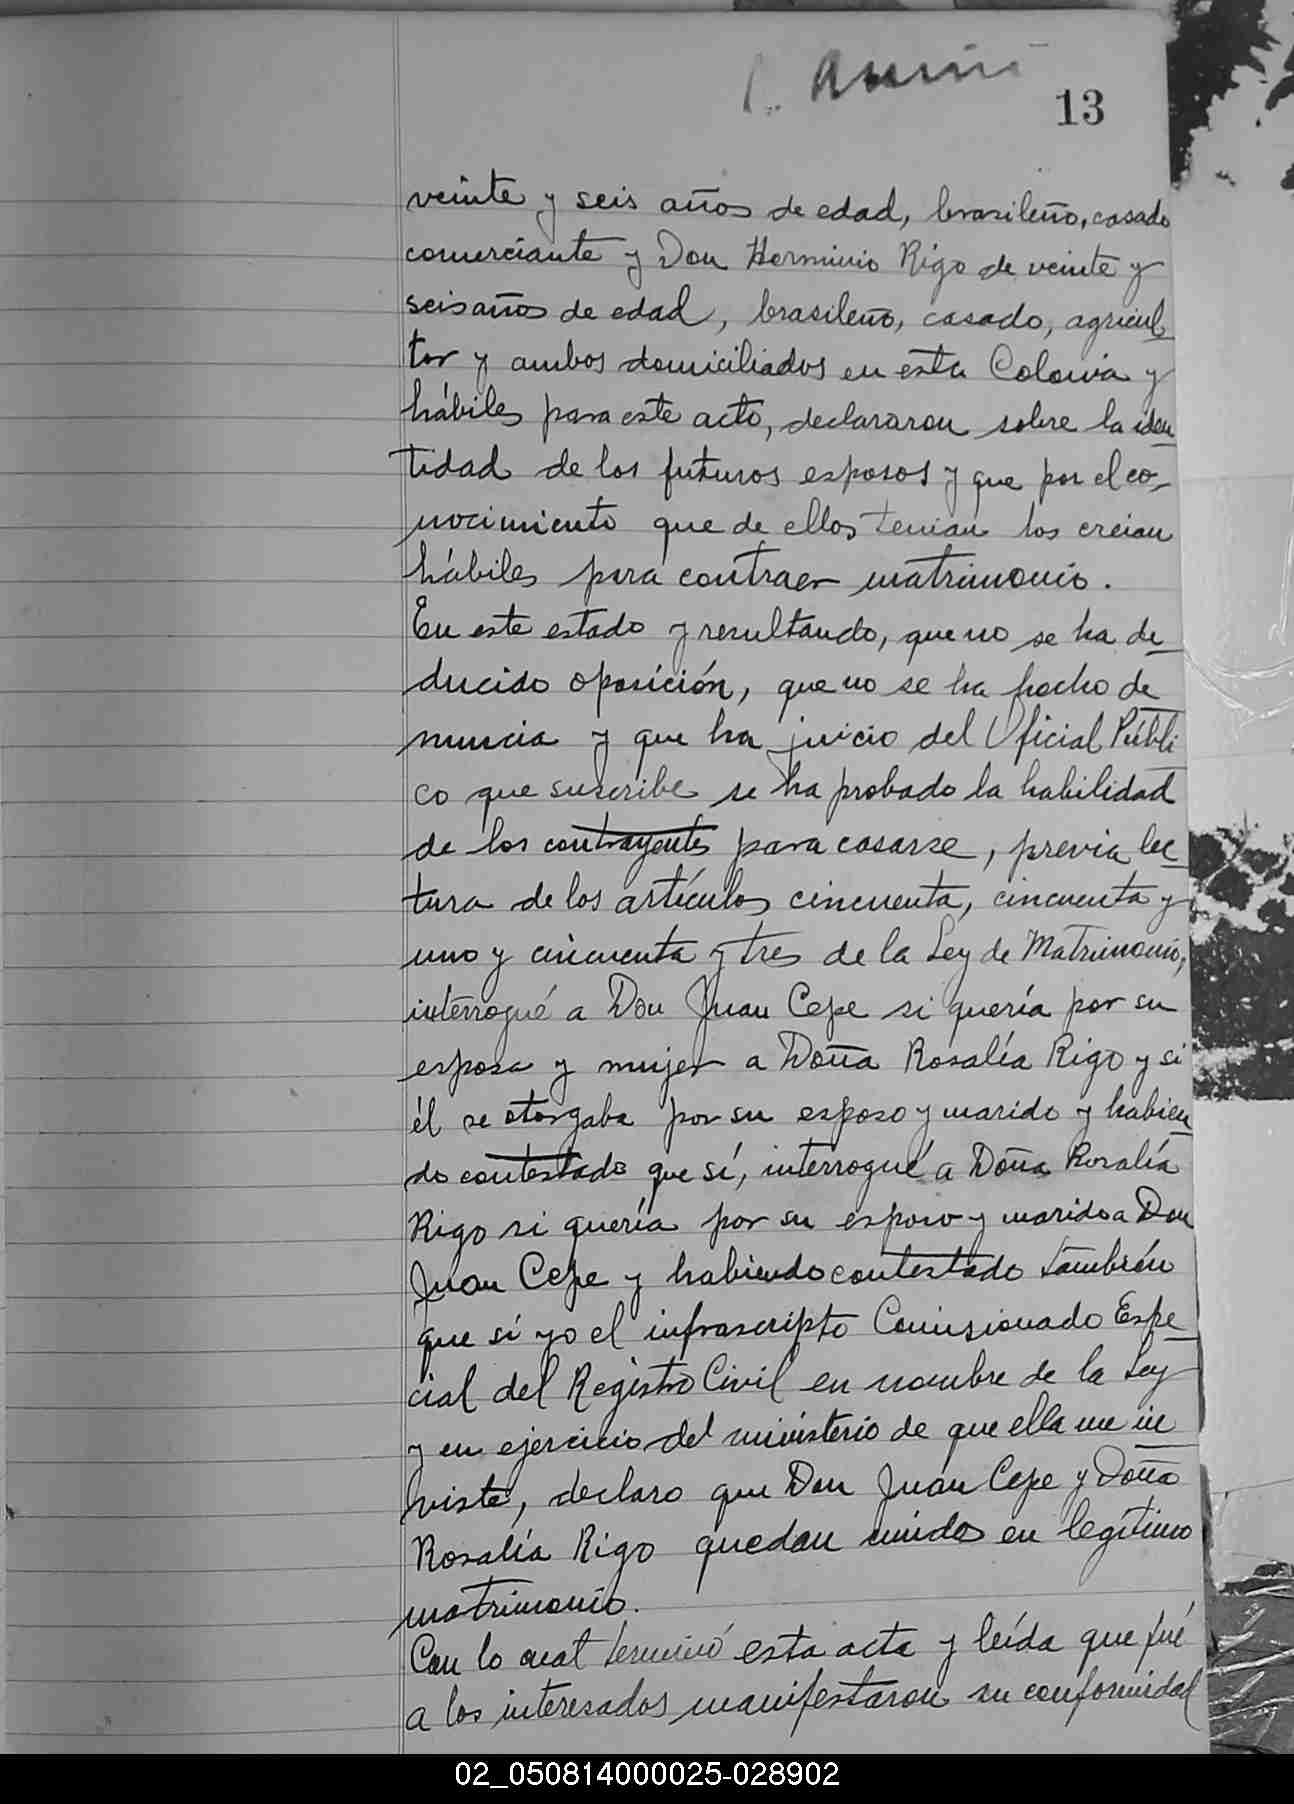 13
veinte y seis años de edad, brasileño, casado
comerciante y Don Herminio Rigo de veinte y
seis años de edad, brasileño, casado, agricul
tor y ambos domiciliados en esta Colonia y
hábiles para este acto, declararon sobre la iden
tidad de los futuros esposos y que por el co-
nocimiento que de ellos tenian los creian
hábiles para contraer matrimonio.
En este estado y resultando, que no se ha de
ducido oposición, que no se ha hecho de
nuncia y que ha juicio del Oficial Públi
co que suscribe se ha probado la habilidad
de los contrayentes para casarse, previa lec
tura de los artículos cincuenta, cincuenta y
uno y cincuenta y tres de la Ley de Matrimonio,
interrogué a Don Juan Cepe si quería por su
esposa y mujer a Doña Rosalía Rigo y si
él se otorgaba por su esposo y marido y habien
do contestado que sí, interrogué a Doña Rosalía
Rigo si quería por su esposo y marido a Don
Juan Cepe y habiendo contestado también
que sí yo el infrascripto Comisionado Espe
cial del Registro Civil en nombre de la Ley
y en ejercicio del ministerio de que ella me in
viste, declaro que Don Juan Cepe y Doña
Rosalía Rigo quedan unidos en legítimo
matrimonio.
Con lo cual terminó esta acta y leída que fué
a los interesados manifestaron su conformidad
02_050814000025-028902